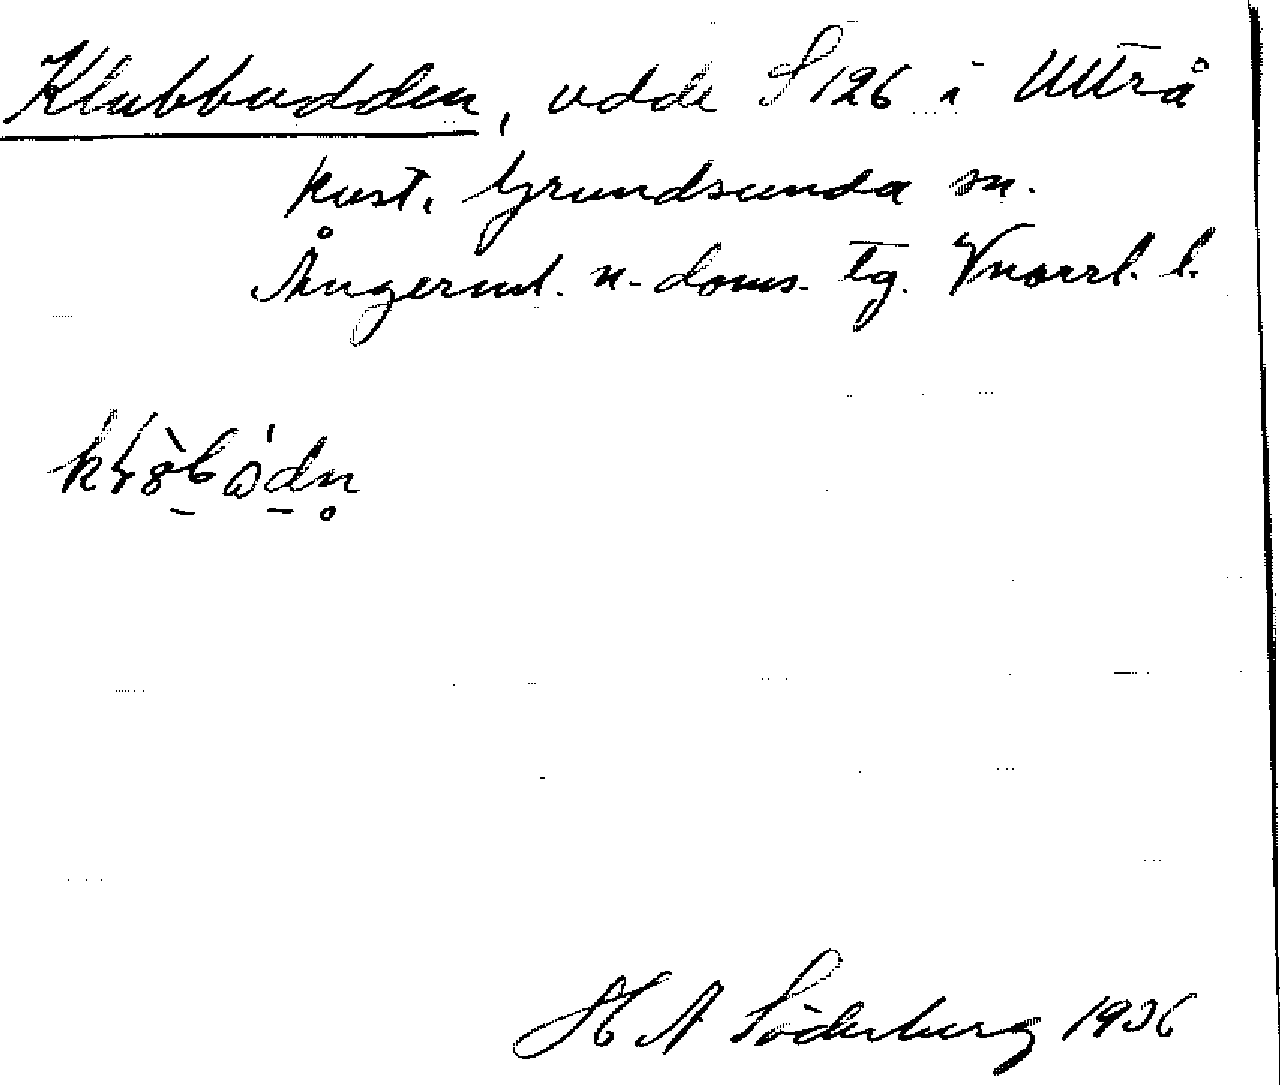 Klubbudden, udde S 126 i Utterå
kust. Grundsunda sn.
Ångerml. n. doms. tg. Vnorrl. l.
H A Söderberg 1936